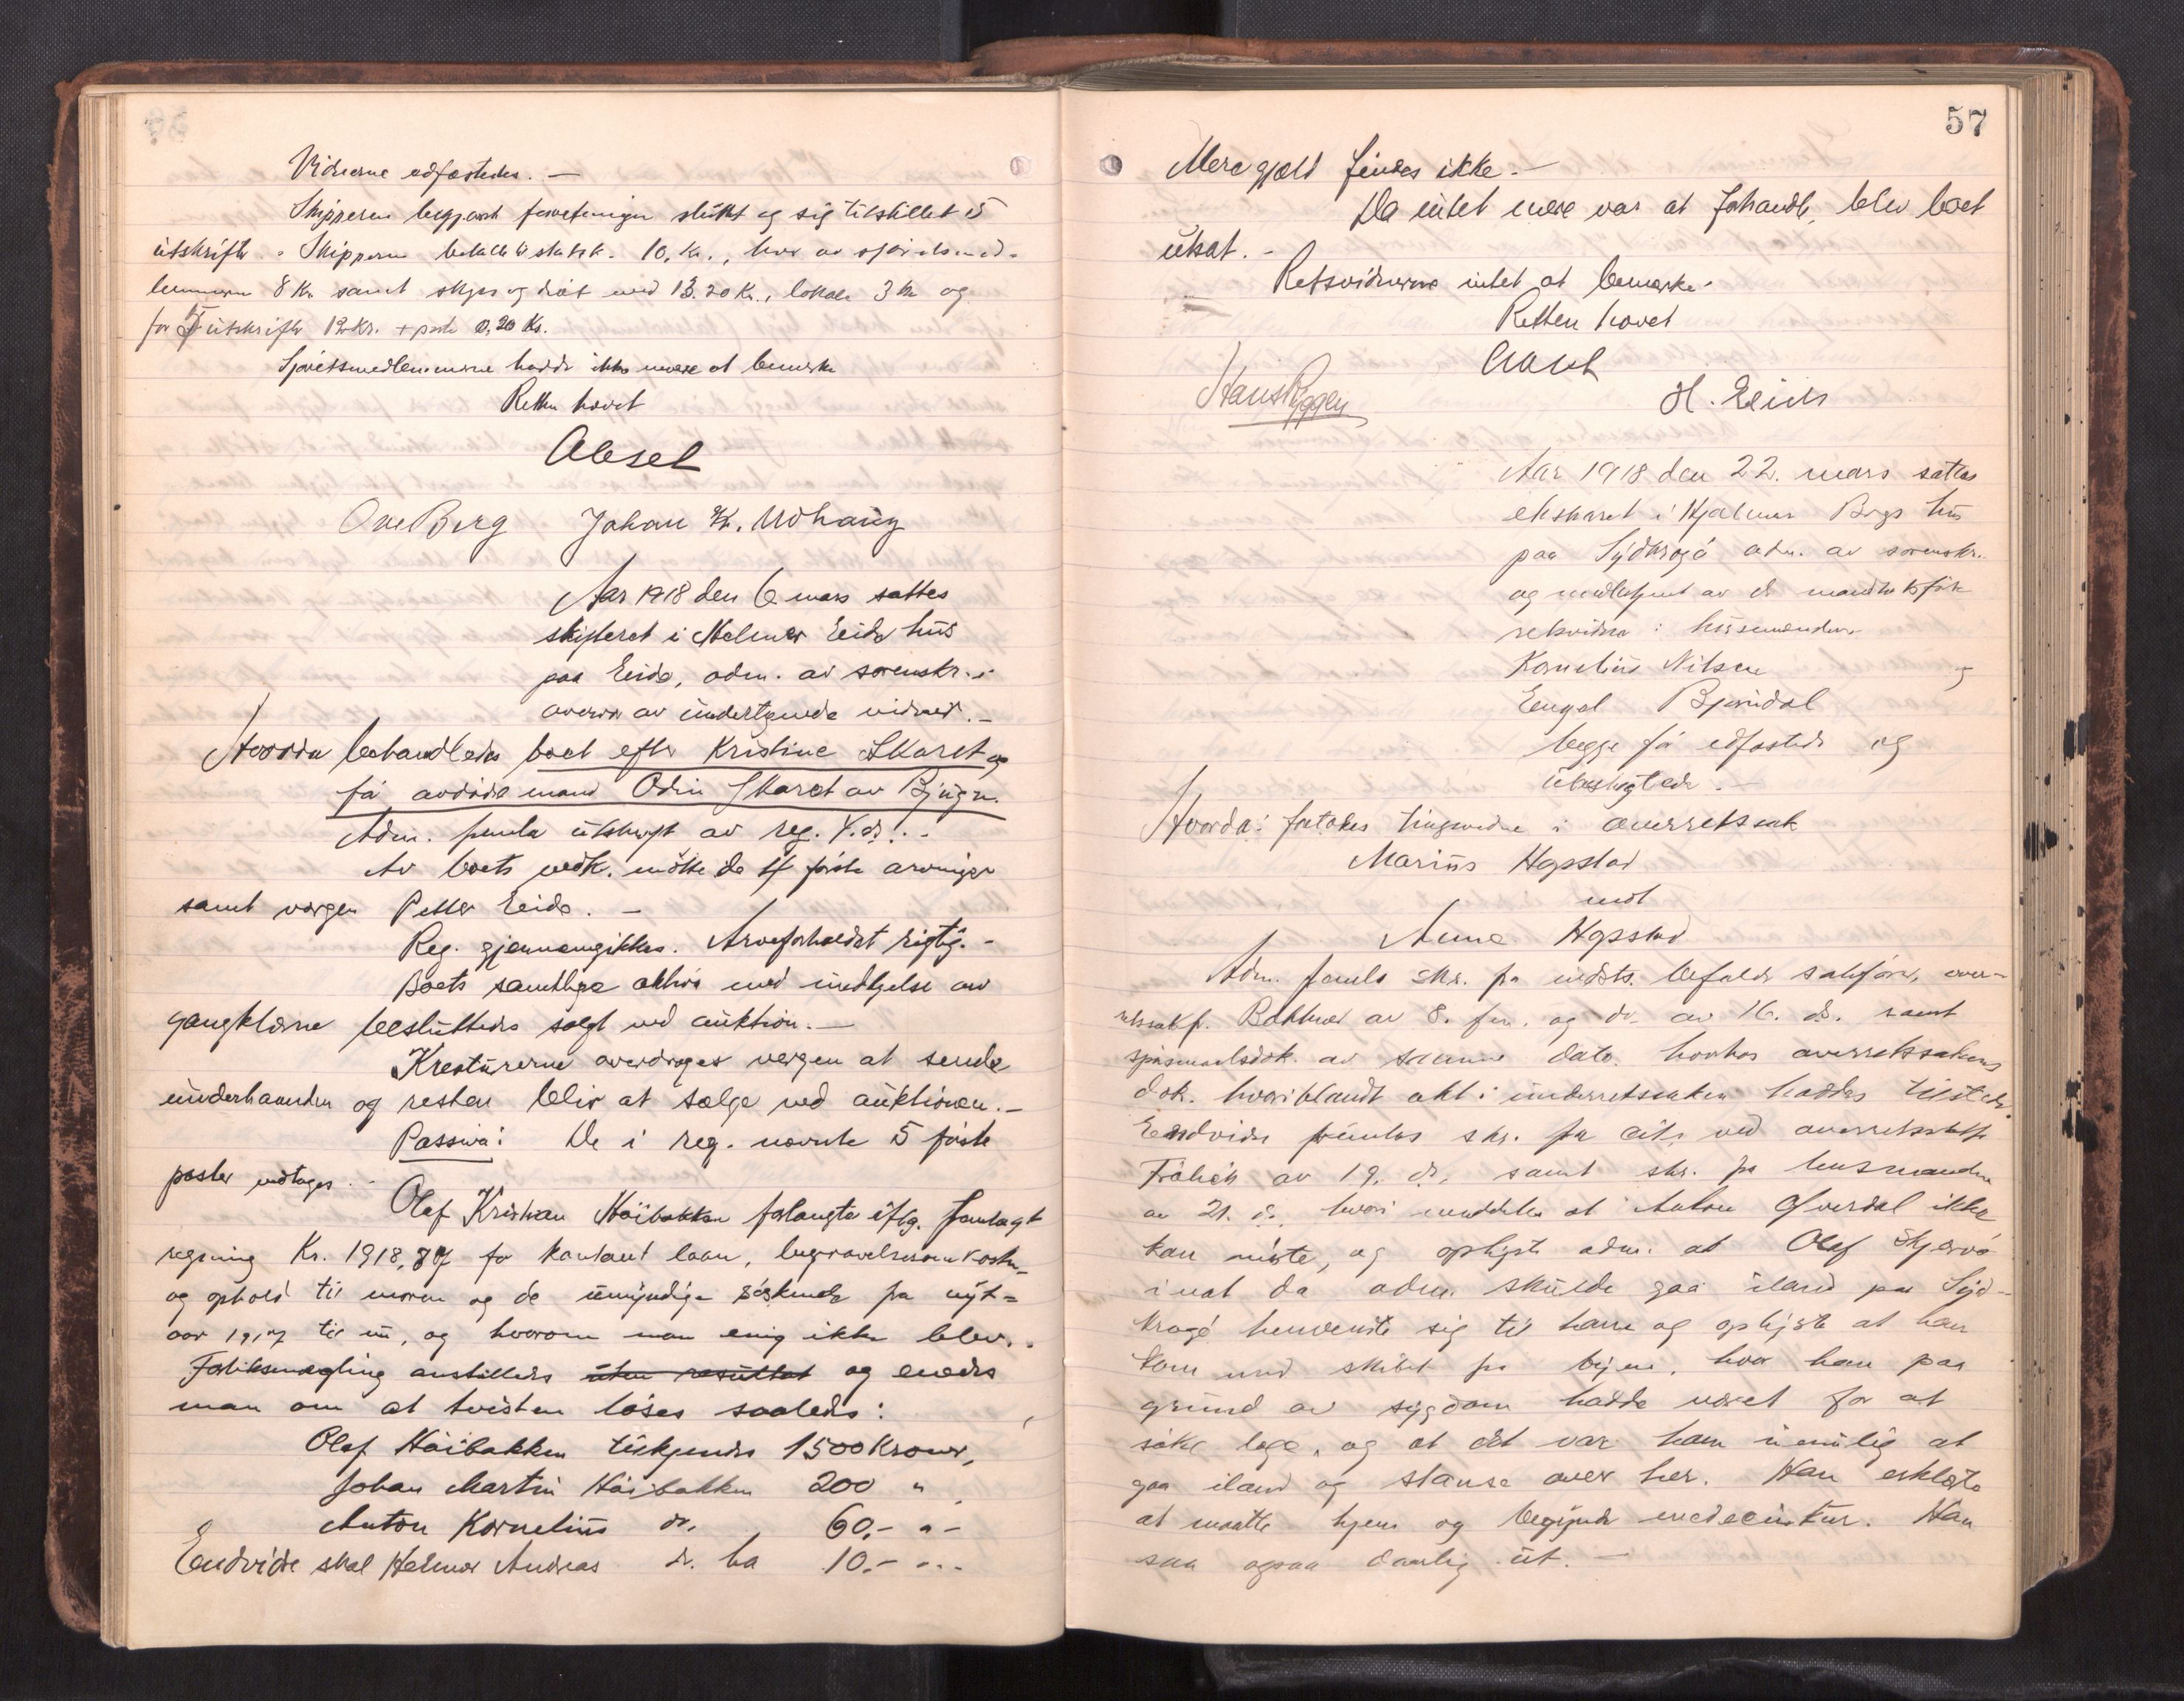 Vidnerne edfæstedes. —
Skipperen begjært forretningen sluttet og sig tilstillet 5
utskrifter. Skipperen betalte 10, Kr., hvor av sjøretsmed-
lemmerne 8 Kr. samt skyss og diæt med 13.20 Kr., lokale 3 kr og
for 5 utskrifter 12 Kr. + porto 0,20 Kr.
Sjøretsmedlemmerne hadde ikke mere at bemerke
Retten hævet
Ove Berg Johan Kr. Udhaug
Aar 1918 den 6 mars sattes
skifteret i Helmer Eides hus
paa Eide, adm. av sorenskr. i
overvær av undertegnede vidner. —
Hvorda behandledes boet efter Kristine Skaret og
før avdøde mand Odin Skaret av Bjugn.
Adm. fremla utskrift av reg. 4. ds. -
Av boets vedk. møtte de 4 første arvinger
samt vergen Petter Eide. —
Reg. gjennemgikkes. Arveforholdet rigtig. -
Boets samtlige aktiva med undtagelse av
gangklærne besluttedes solgt ved auktion. —
Kreaturerne overdroges vergen at sende
underhaanden og resten blir at sælge ved auktionen. —
Passiva: De i reg. nævnte 5 første
poster vedtages. -
Olaf Kristian Høibakken forlangte iflg. fremlagt
regning Kr. 1918,87 for kontant laan, begravelsesomkostn.
og ophold til moren og de umyndige søskende fra nyt-
aar 1917 til nu, og hvorom man enig ikke blev. -
Forliksmægling anstilledes uten resultat og enedes
man om at tvisten løses saaledes:
Olaf Høibakken tilkjendes 1500 Kroner,
Johan Martin Høibakken 200 "
Anton Kornelius do. 60,- " -
Endvidre skal Helmer Andreas do. ha 10,- " -
57
Mere gjæld findes ikke. —
Da intet mere var at forhandle, blev boet
utsat. -
Retsvidnerne intet at bemerke.
Retten hævet
Hans Ryggen H. Eide
Aar 1918 den 22. mars sattes
ekstraret i Hjalmar Bergs hus
paa Sydkrogø adm. av sorenskr.
og medbetjent av de mandtalsførte
retsvidner: husmændene
Kornelius Nilsen og
Engel Bjørndal
begge før edfæstede og
ubeslegtede. —
Hvorda: foretokes tingsvidne i overretssak
Marius Hopstad
mot
Anna Hopstad
Adm. fremla skr. fra indst. befalede sakfører, over-
retssakf. Bakkner av 8. fm. og do. av 16. ds. samt
spørsmaalsdok. av samme dato. hvorhos overretssakens
dok. hvoriblandt akt i underretssaken haddes tilstede.
Endvidre fremlas skr. fra cit. ved overretssakf.
av 19. ds., samt skr. fra lensmanden
av 21. ds., hvori meddeles at Anton ikke
kan møte, og oplyste adm. at Olaf Skjervø
inat da adm. skulde gaa iland paa Syd-
krogø henvendte sig til ham og oplyste at han
kom med skibet fra byen, hvor han paa
grund av sygdom hadde været for at
søke læge, og at det var ham umulig at
gaa iland og stanse over her. Han erklærte
at maatte hjem og begynde medecinkur. Han
saa ogsaa daarlig ut. —